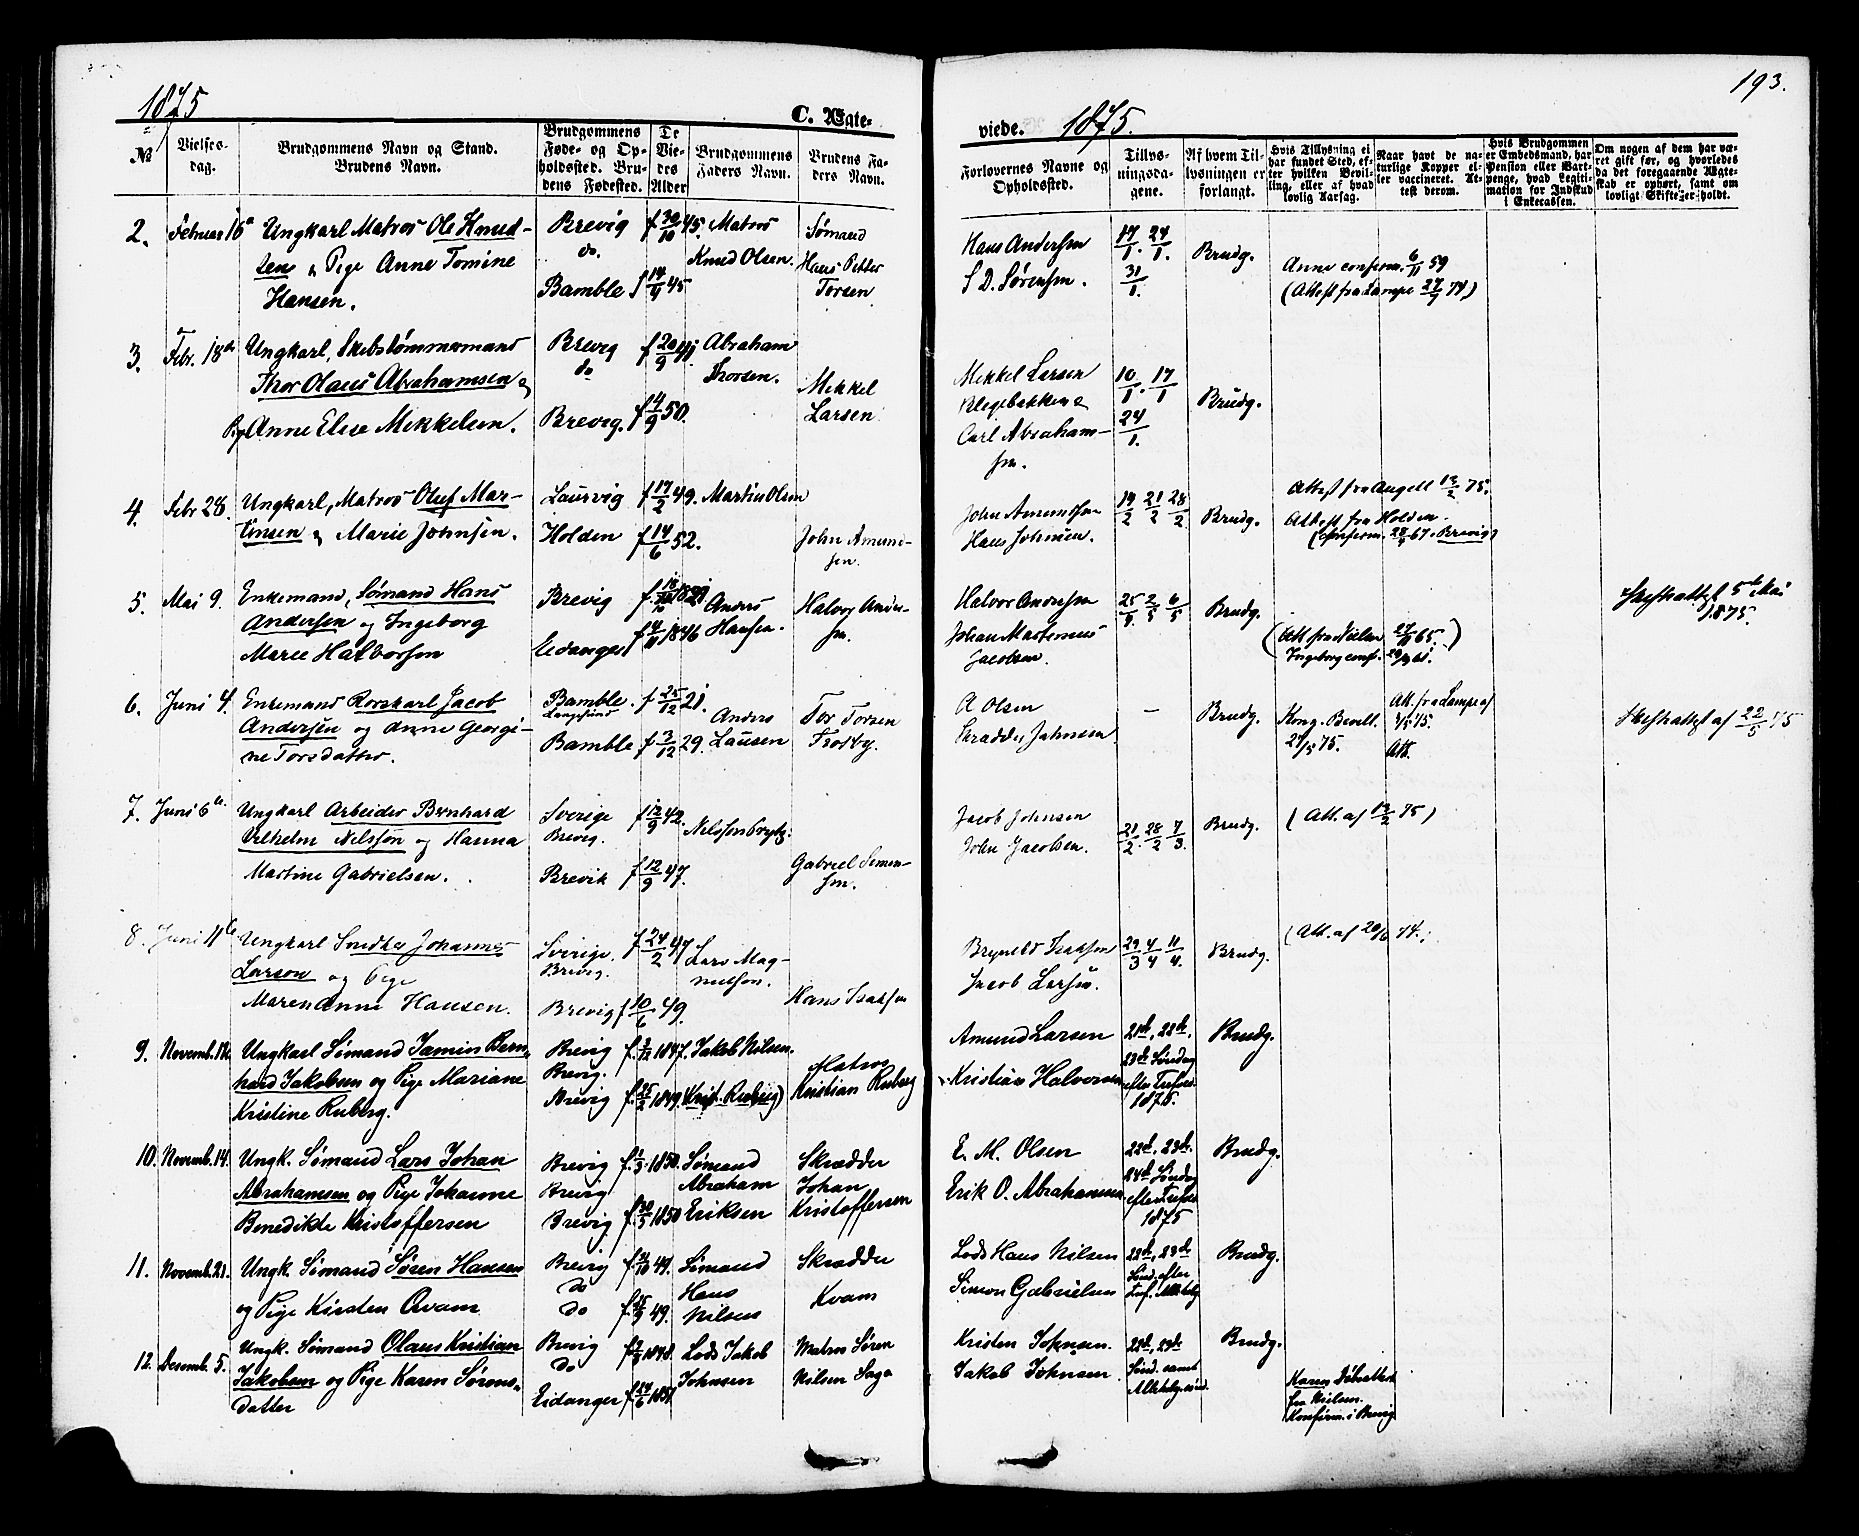 193.
1875
C. Ægte-
viede. 1875.
№
Vielses-
dag.
Brudgommens Navn og Stand.
Brudens Navn.
Brudgommens
Føde- og Op-
holdssted. Bru-
dens Fødested.
De
Vie-
des
Alder
Brudgommens
Faders Navn.
Brudens Fa-
ders Navn.
Forlovernes Navne og
Opholdssted.
Tillys-
ningsda-
gene.
Af hvem Til-
lysningen er
forlangt.
Hvis Tillysning ei
har fundet Sted, ef-
ter hvilken Bevil-
ling, eller af hvad
lovlig Aarsag.
Naar havt de na-
turlige Kopper el-
ler vaccineret. At-
test derom.
Hvis Brudgommen
er Embedsmand, har
Pension eller Vart-
penge, hvad Legiti-
mation for Indskud
i Enkecassen.
Om nogen af dem har væ-
ret gift før, og hvorledes
da det foregaaende Ægte-
skab er ophørt, samt om
lovligt Skifte er holdt.
2. Februar 16de
Ungkarl Matros Ole Knud-
sen & Pige Anne Tomine
Hansen.
Brevig
do.
Bamble
f 30/10 45.
f 14/9 45
Matros
Knud Olsen.
Sømand
Hans Petter
Torsen
Hans Andersen
S. D. Sørensen.
17/1. 24/1.
31/1.
Brudg.
Anne conferm. 6/11 59
(Attest fra Lampe 27/9 74)
3. Febr. 18de
Ungkarl, Skibstømmermand
Thor Olaus Abrahamsen &
Pig Anne Elise Mikkelsen.
Brevig
do
Brevig.
f 20/9 41
f 4/9 50.
Abraham
Thorsen.
Mikkel
Larsen
Mikkel Larsen
Blegebakken &
Carl Abraham-
sen.
10/1. 17/1
24/1.
Brudg.
4. Febr 28.
Ungkarl, Matros Oluf Mar-
tinsen & Marie Johnsen.
Laurvig
Holden
f 17/2 49.
f 14/6 52.
Martin Olsen
John Amund-
sen.
John Amundsen
Hans Johnsen.
14/2 21/2 28/2
Brudg.
Attest fra Angell 13/2 75.
Attest fra Holden.
(conferm. 28/4 67 i Brevig)
5. Mai 9.
Enkemand, Sømand Hans
Andersen og Ingeborg
Marie Halvorsen
Brevig
Eidanger
f 18/10 1821
f 4/11 1846
Anders
Hansen.
Halvor Ander-
sen.
Halvor Andersen
Johan Martinius
Jacobsen.
25/4 2/5 6/5
Brudg.
(Att. fra Nielsen 27/11 65.)
Ingeborg conf. 29/9 61.
Skifteattest 5te Mai
1875.
6. Juni 4.
Enkemand Rorskarl Jacob
Andersen og Anne Georgi-
ne Torsdatter.
Bamble.
Langesund
Bamble
f 25/12 21.
f 3/12 29.
Anders
Lausen
Tor Torsen
Trosby.
A Olsen
Skrædder Johnsen
—
Brudg.
Kong. Bevill.
24/5 75.
Att. fra Lampe af
3/5 75.
Att.
Skifteattest af 22/5 75
7. Juni 6te.
Ungkarl Arbeider Bernhard
Vilhelm Nilsson og Hanna
Martine Gabrielsen.
Sverige
Brevig.
Brevik
f 12/9 42.
f 12/9 47.
Gabriel Simon-
sen.
Jacob Johnsen
John Jacobsen.
21/2. 28/2 7/3.
Brudg.
(Att. af 13/2 75)
8. Juni 11te
Ungkarl Snedker Johannes
Larson og Pige
Maren Anne Hansen.
Sverige.
Brevig.
Brevig
f 24/2 47
f 10/6 49.
Lars Mag-
nusson.
Hans Isaksen
Brynild Isaksen
Jacob Larsen.
29/3 4/4 11/4.
Brudg.
(Att. af 20/6 74.)
9. Novemb. 12.
Ungkarl Sømand Jamin Bern-
hard Jakobsen og Pige Mariane
Kristine Ruberg.
Brevig
Brevig.
Brevig
f. 3/12 1847.
f. 25/2 1849.
Jakob Nilsen.
(Krist. Ruberg)
Matros
Kristian Ruberg
Amund Larsen
Kristian Halvorsen
21de, 22de,
23de Søndag
efter Trefold.
1875.
Brudg.
10. Novemb. 14.
Ungk. Sømand Lars Johan
Abrahamsen og Pige Johanne
Benedikte Kristoffersen
Brevig
Brevig
Brevig
f. 1/3 1850
f. 30/5 1850
Sømand
Abraham
Eriksen
Skrædder
Johan
Kristoffersen
E. M. Olsen
Erik O. Abrahamsen
22de, 23de,
24de Søndag
efter Trefold.
1875
Brudg.
11. Novemb. 21.
Ungk. Sømand Søren Hansen
og Pige Kirsten Qvam
Brevig
do
do
f. 31/10 49.
f. 15/9 49.
Sømand
Hans
Nilsen
Skrædder
Kvam
Lods Hans Nilsen
Simon Gabrielsen
22de, 23de
Sønd. efter
Tref. Allehelg
Brudg.
12. Desemb. 5.
Ungk. Sømand Olaus Kristian
Jakobsen og Pige Karen Sørens-
datter
Brevig
do
Eidanger
f. 2/3 1848.
f. 24/6 1851
Lods Jakob
Johnsen
Matros Søren
Nilsen Saga
Kristen Johnsen.
Jakob Johnsen
22de, 24de
Sønd. samt
Allehelgensd.
Brudg.
Karen Døbeattest
fra Nielsen.
Konfirm. i Brevig